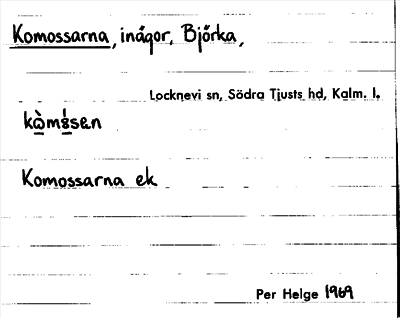 Komossarna, inägor, Björka,
Locknevi sn, Södra Tjusts hd, Kalm. l.
Komossarna ek
Per Helge 1969